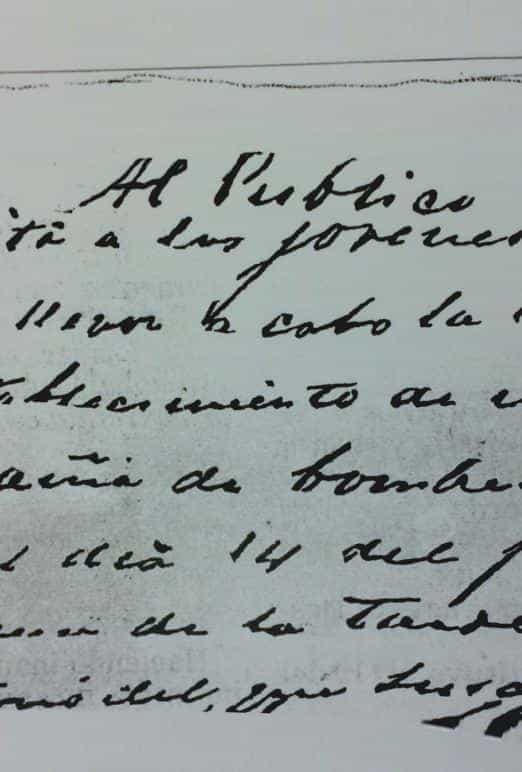 Al Publico
itá a los jovenes
llevar à cabo la
tablecimiento de u
añia de bombe
dià 14 del p
de la tarde
que